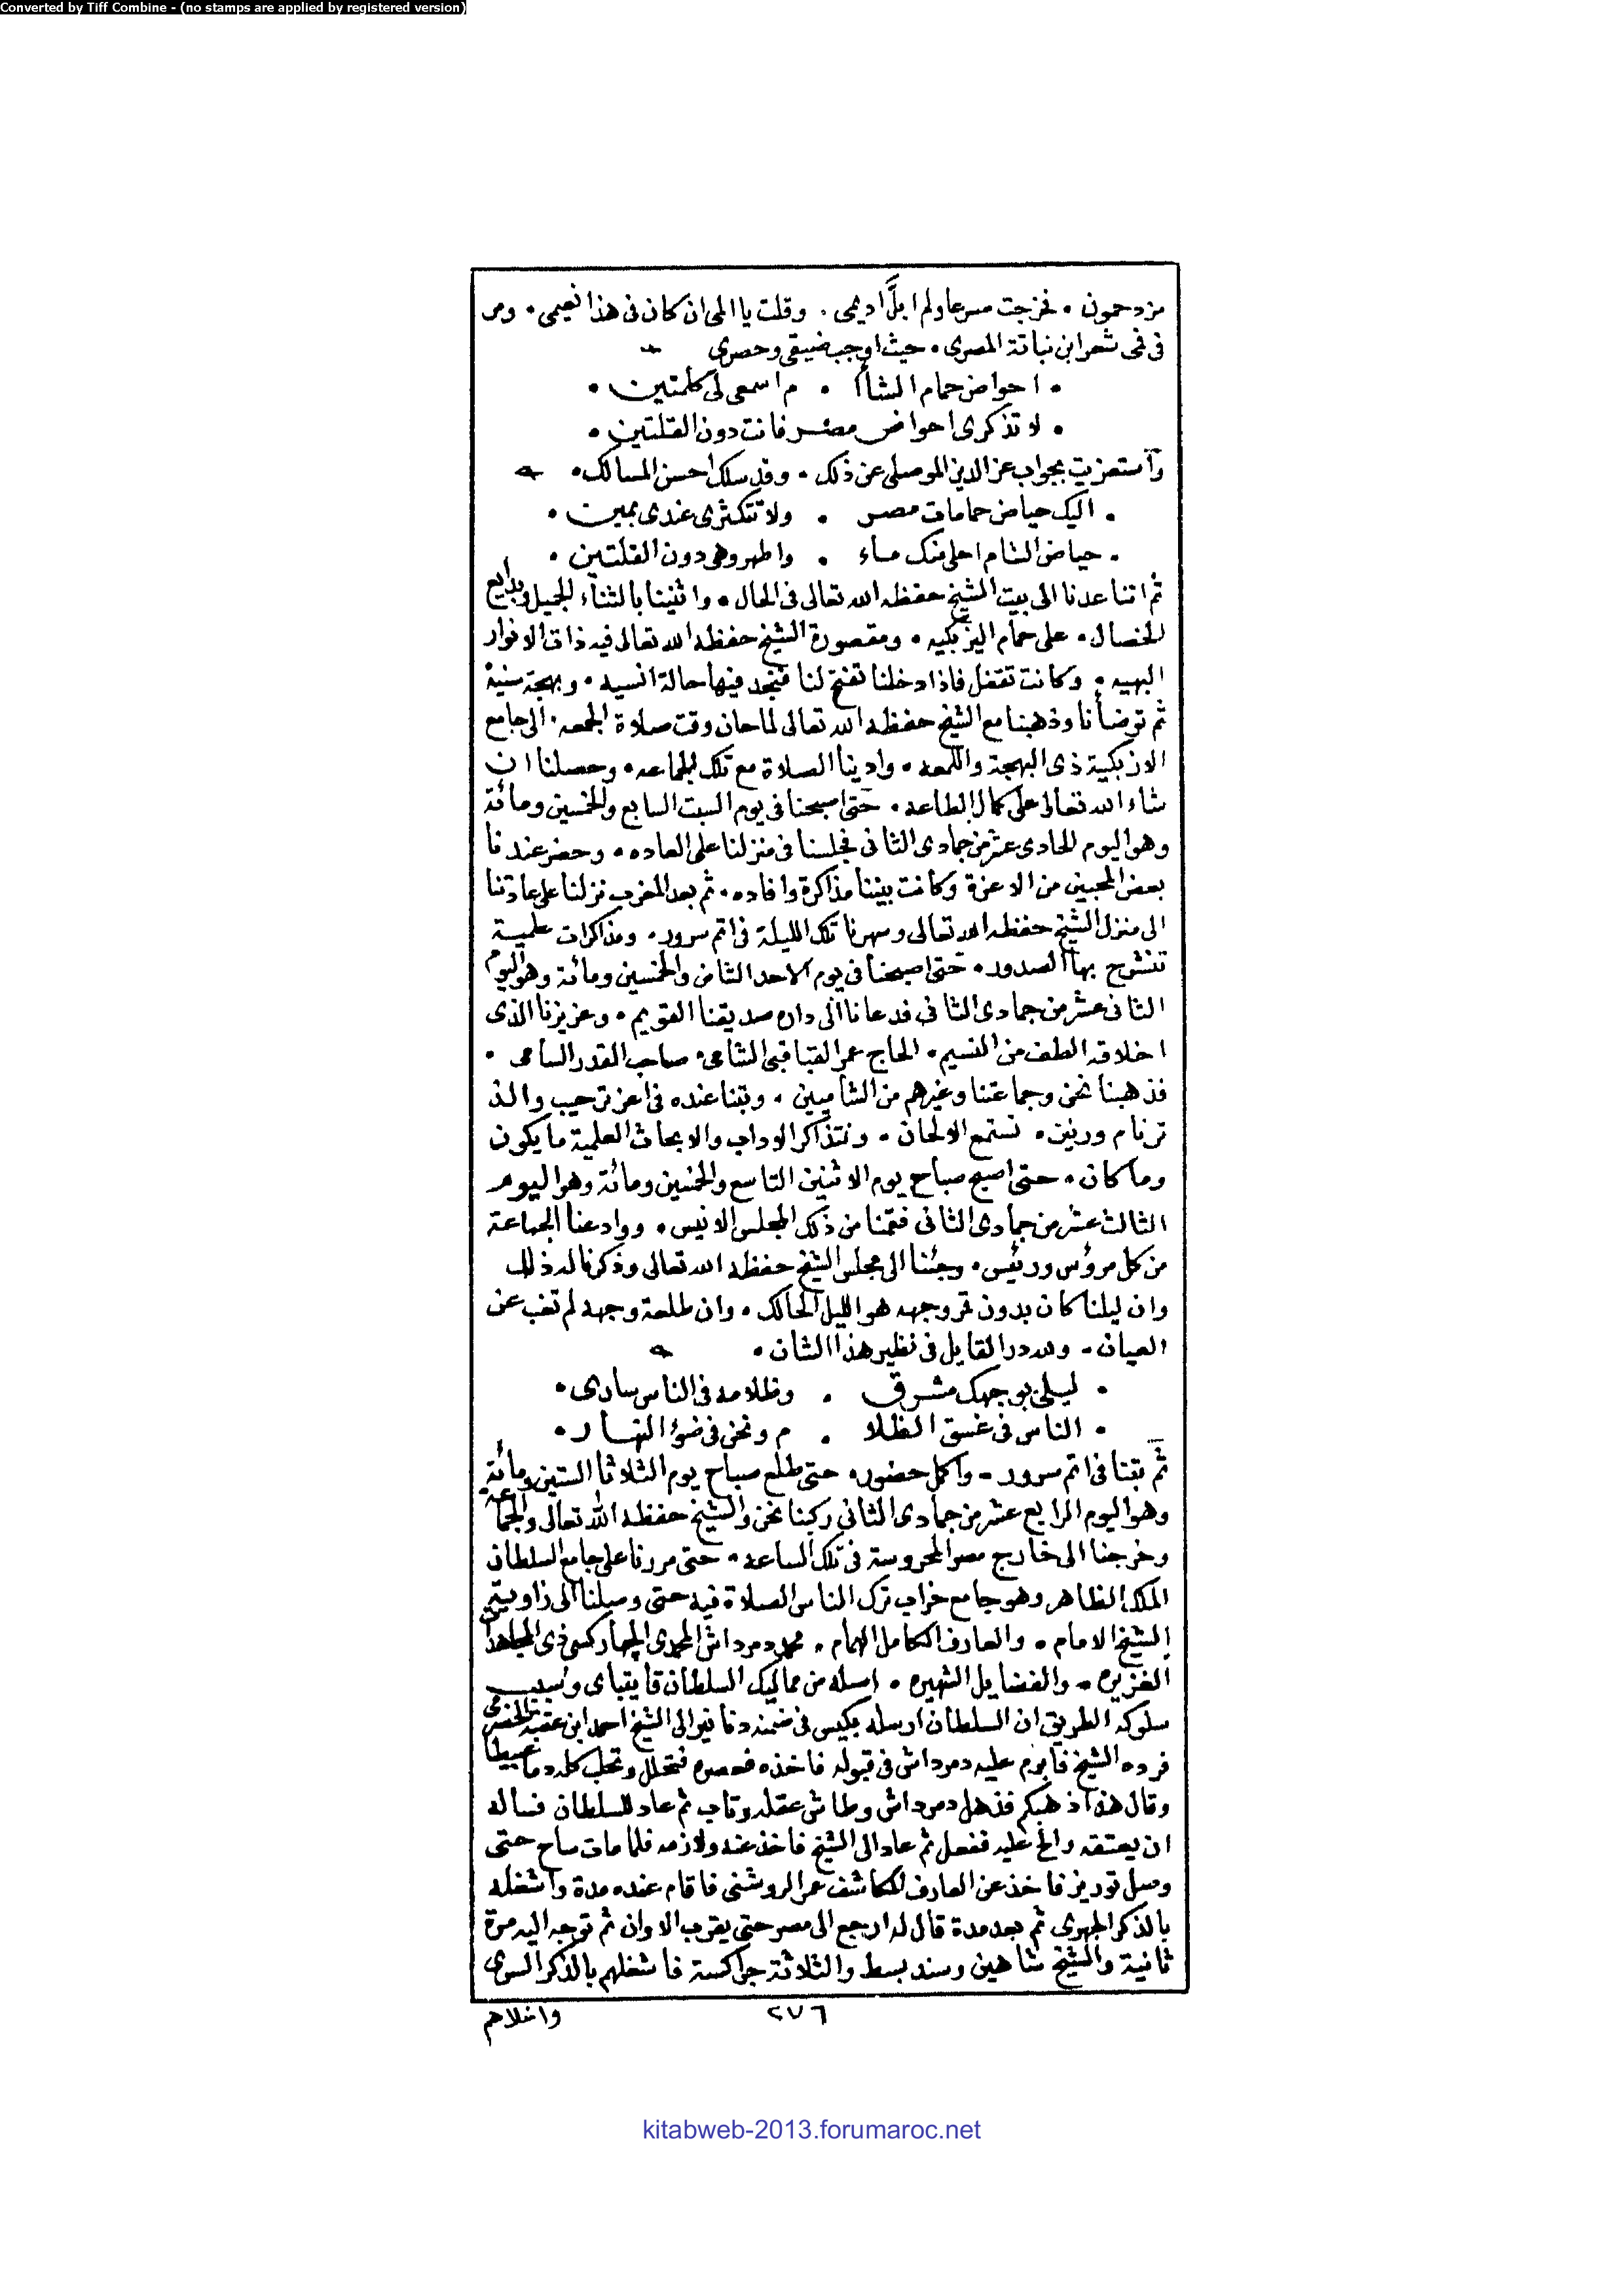 Converted by Tiff Combine - (no stamps are applied by registered version)
مزدحمون • فخرجت مسرعا ولم ابلّ اديمى • وقلت يا الهى ان كان فى هذا نعيمى • ومر
فى فمى شعر ابن نباتة المصرى • حيث اوجب ضيقى وحصرى
• احواض حمام الشآ • م اسمعى لى كلمتين •
• لا تذكرى احواض مصر فانت دون القلتين •
وآستعزيت بجواب عز الدين الموصلى عن ذلك • وقد سلك احسن المسالك •
• اليك حياض حمامات مصر • ولا تتكثرى عندى بمين •
• حياض الشام احلى منك ماء • واطهر وهى دون القلتين •
ثم اننا عدنا الى بيت الشيخ حفظه الله تعالى فى الحال • واثنينا بالثناء الجميل وبدايع
الخصال • على حمام اليزبكيه • ومقصورة الشيخ حفظه الله تعالى فيه ذات الانوار
البهيه • وكانت تقفل فاذا دخلنا تفتح لنا فنجد فيها حالة انسيه • وبهجة سنية
ثم توضأنا وذهبنا مع الشيخ حفظه الله تعالى لما حان وقت صلاة الجمعه • الى جامع
الازبكية ذى البهجة واللمعه • وادينا الصلاة مع تلك الجماعه • وحصلنا ان
شاء الله تعالى على كمال الطاعه • حتى اصبحنا فى يوم السبت السابع والخمسين ومائة
وهو اليوم الحادى عشر من جمادى الثانى فجلسنا فى منزلنا على العاده • وحضر عندنا
بعض المحبين من الاعزة وكانت بيننا مذاكرة وافاده • ثم بعد المغرب نزلنا على عادتنا
الى منزل الشيخ حفظه الله تعالى وسهرنا تلك الليلة فى اتم سرور • ومذاكرات علمية
تنشرح بها الصدور • حتى اصبحنا فى يوم الاحد الثامن والخمسين ومائة وهو اليوم
الثانى عشر من جمادى الثانى فدعانا الى داره صديقنا القويم • وعزيزنا الذى
اخلاقه الطف من النسيم • الحاج عمر القباقبى الشامى • صاحب القدر السامى •
فذهبنا نحن وجماعتنا وغيرهم من الشاميين • وبتنا عنده فى اعز ترحيب والذ
ترنام ورنين • نستمع الالحان • ونتذاكر الاداب والابحاث العلمية ما يكون
وما كان • حتى اصبح صباح يوم الاثنين التاسع والخمسين ومائة وهو اليوم
الثالث عشر من جمادى الثانى فقمنا من ذلك المجلس الانيس • ووادعنا الجماعة
من كل مرؤس ورئيس • وجئنا الى مجلس الشيخ حفظه الله تعالى وذكرنا له ذلك
وان ليلنا كان بدون قمر وجهه هو الليل الحالك • وان طلعة وجهه لم تغب عن
العيان • ولله در القايل فى نظير هذا الشان •
• ليلى بوجهك مشرق • وظلامه فى الناس سارى •
• الناس فى غسق الظلا • م ونحن فى ضوء النهار •
ثم بتنا فى اتم سرور • واكمل حضور • حتى طلع صباح يوم الثلاثا الستين ومائة
وهو اليوم الرابع عشر من جمادى الثانى ركبنا نحن والشيخ حفظه الله تعالى والجماعة
وخرجنا الى خارج مصر المحروسة فى تلك الساعه • حتى مررنا على جامع السلطان
الملك الظاهر وهو جامع خراب ترك الناس الصلاة فيه حتى وصلنا الى زاوية
الشيخ الامام • والعارف الكامل الهمام • محمد دمرداش المحمدى الجهاركسى ذى المجاهدات
الغزيره • والفضايل الشهيره • اصله من مماليك السلطان قايتباى وسبب
سلوكه الطريق ان السلطان ارسله بكيس فى ضمنه دنانير الى الشيخ احمد ابن عقبة الحضرمى
فرده الشيخ فابرم عليه دمرداش فى قبوله فاخذه فعصره فتحلل وتحلب كله دما عبيطا
وقال هذا ذهبكم فذهل دمرداش وطاش عقله وتاب ثم عاد للسلطان فساله
ان يعتقه والح عليه ففعل ثم عاد الى الشيخ فاخذ عنه ولازمه فلما مات ساح حتى
وصل توريز فاخذ عن العارف المكاشف عمر الروشنى فاقام عنده مدة واشغله
بالذكر الجهرى ثم بعد مدة قال له ارجع الى مصر حتى يقرب الاوان ثم توجه اليه مرة
ثانية والشيخ شاهين وسند بسط والثلاثة جراكسة فاشغلهم بالذكر السرى
٢٧٦
واخلاهم
kitabweb-2013.forumaroc.net